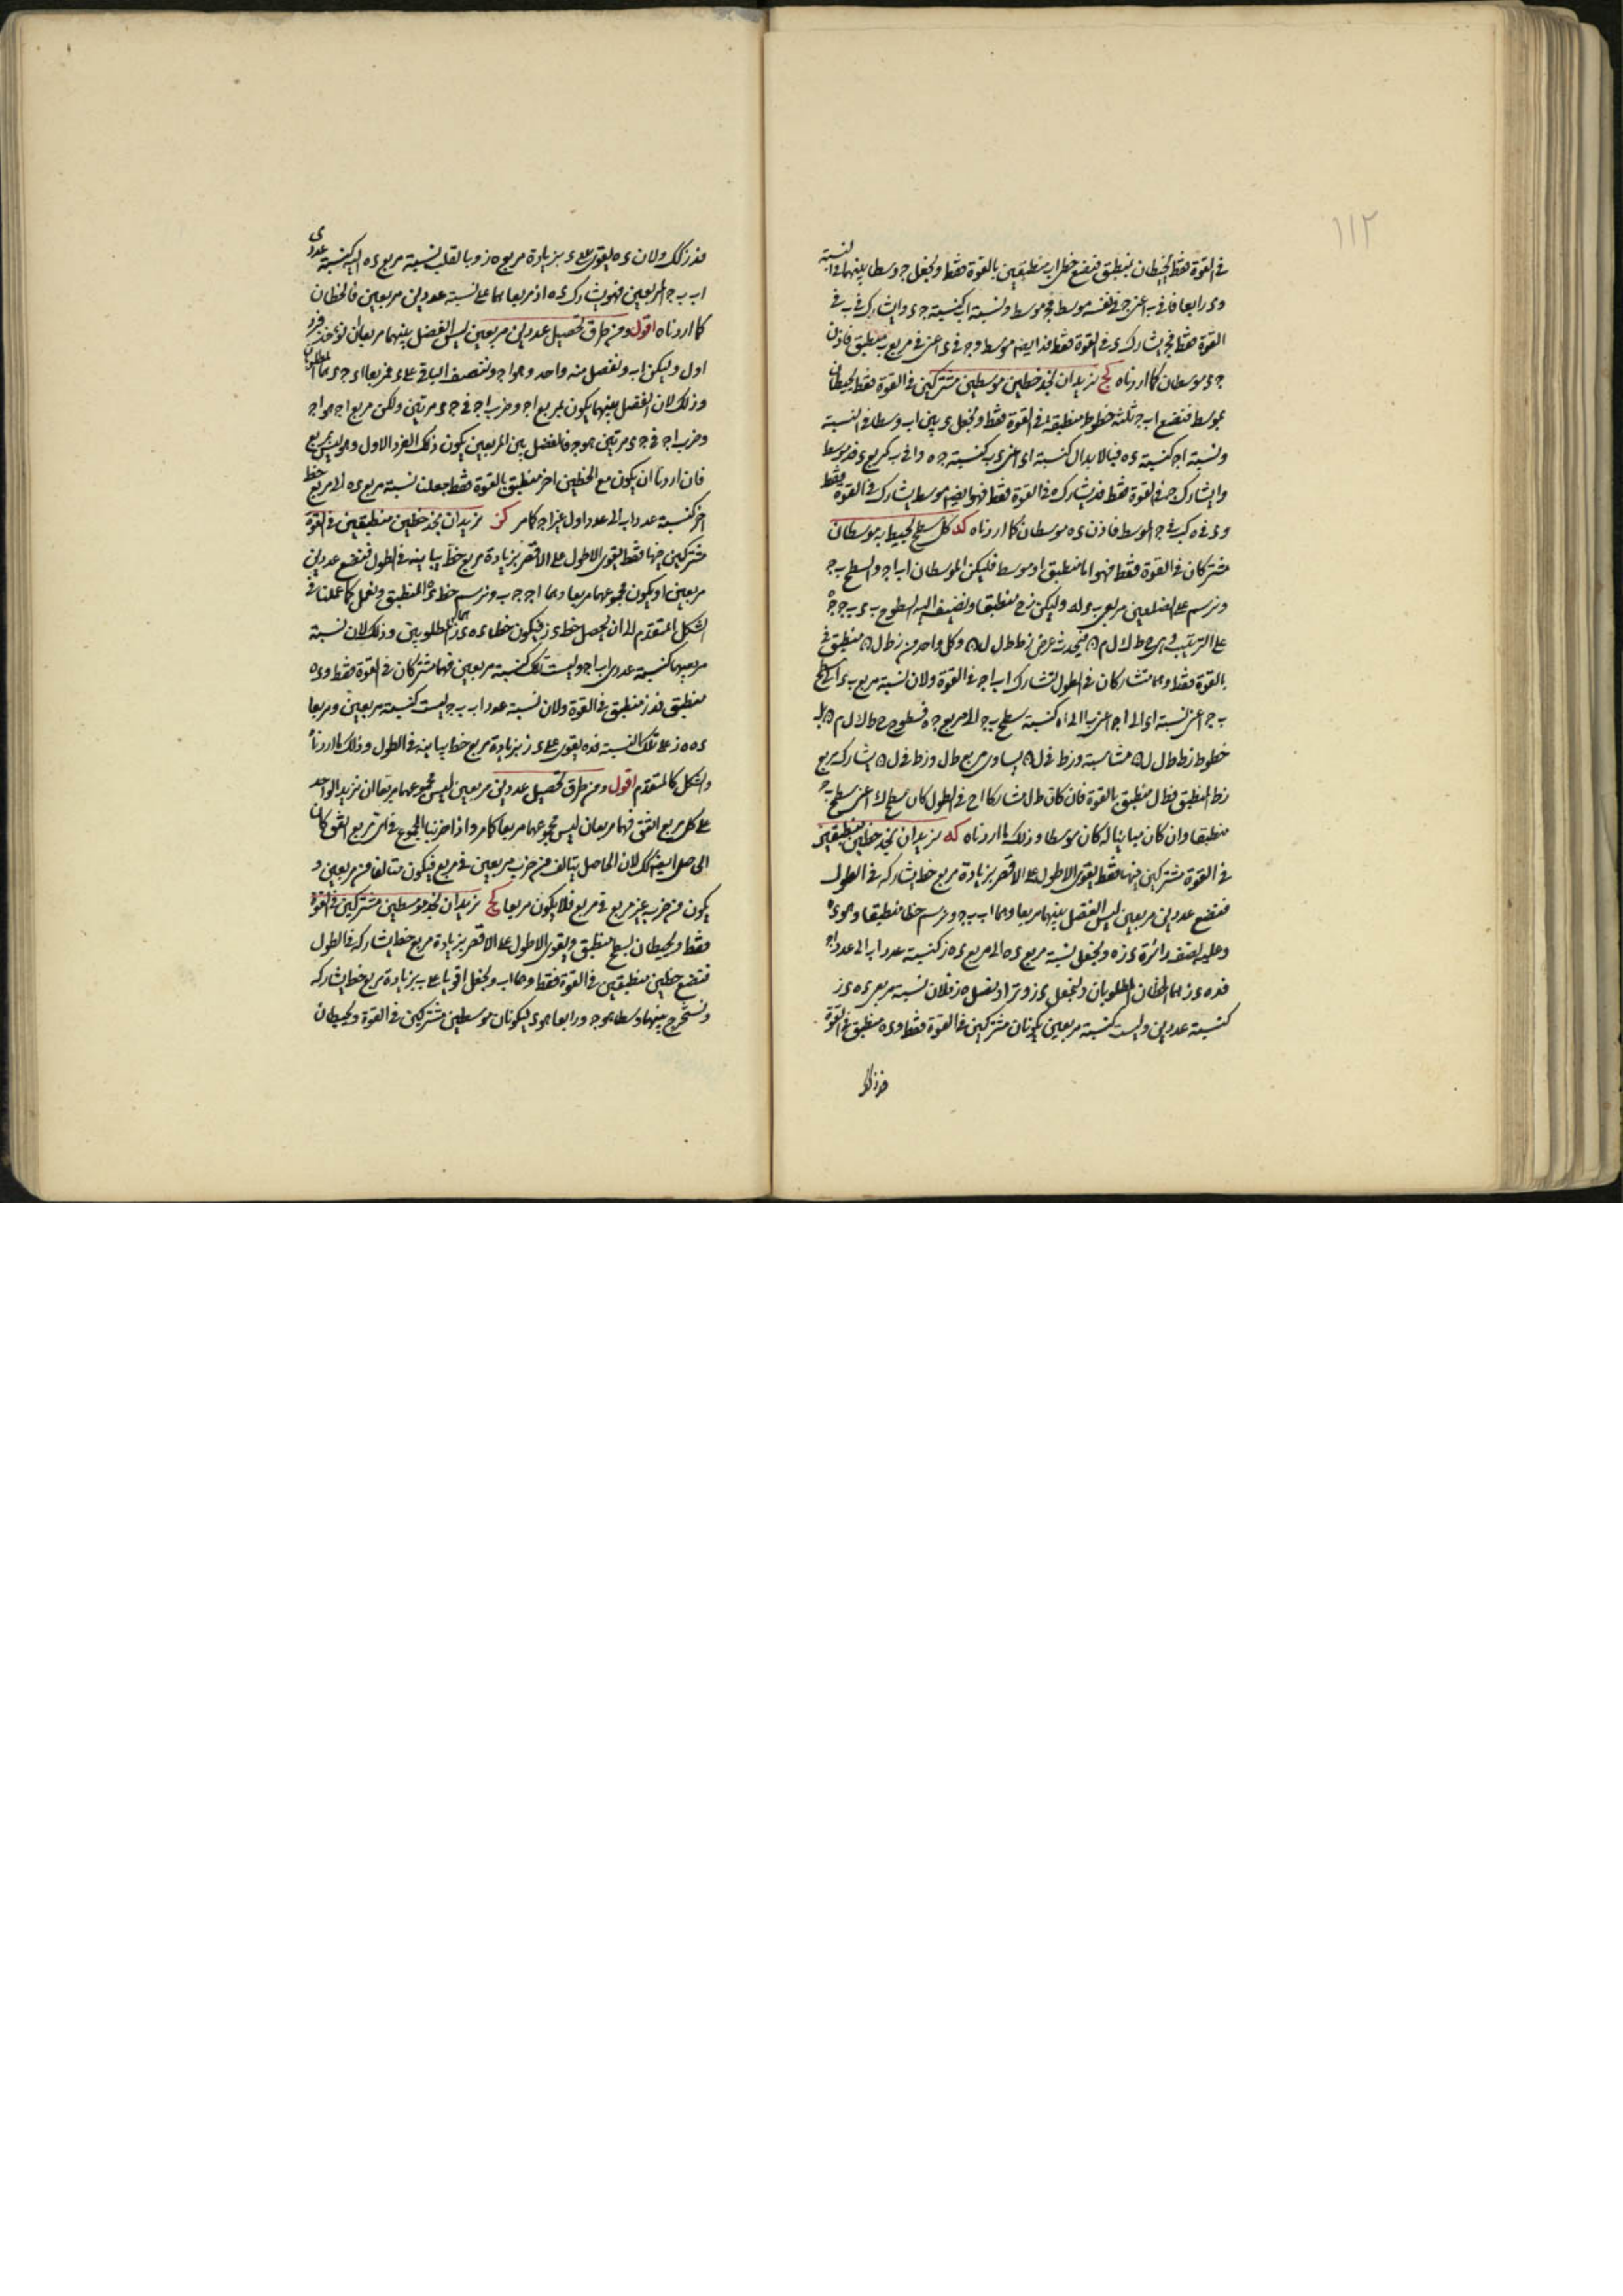 ١١٢
في القوة فقط يحيطان بمنطق فنضع خطى اب منطقين بالقوة فقط ونجعل ج وسطا بينهما في النسبة
و د رابعا فا في ب اعنى ج في نفسه موسط فج موسط ونسبة ا ب كنسبة ج د و ا يشارك ب في
القوة فقط فج يشارك د في القوة فقط فد ايضا موسط و ج في د اعنى في مربع ب منطق فاذن
ج د موسطان كما اردناه كج نريد ان نجد خطين موسطين مشتركين في القوة فقط يحيطان
بموسط فنضع اب ج ثلثة خطوط منطقة في القوة فقط ونجعل د بين اب وسطا في النسبة
ونسبة ا ج كنسبة د ه فبالابدال نسبة ا د اعنى د ب كنسبة ج ه و ا في ب كمربع د فد موسط
و ا يشارك ج في القوة فقط فد يشارك ه في القوة فقط فهو ايضا موسط يشارك في القوة فقط
و د في ه كب في ج الموسط فاذن د ه موسطان كما اردناه كد كل سطح يحيط به موسطان
مشتركان في القوة فقط فهو اما منطق او موسط فليكن الموسطان اب ا ج والسطح ب ج
ونرسم على الضلعين مربعى ب د ج ه وليكن ز ح منطقا ونضيف اليه السطوح ب د ب ج ج ه
بالقوة فقط وهما متشاركان في الطول لتشارك اب ا ج في القوة ولان نسبة مربع ب د الى سطح
ب ج اعنى نسبة ا د الى ا ج اعنى ب ا الى ا ه كنسبة سطح ب ج الى مربع ج ه
زط المنطق فطل منطق بالقوة فان كان طل مشاركا ل ح في الطول كان سطح ط ك اعنى سطح ب ج
منطقا وان كان مباينا له كان موسطا وذلك ما اردناه كه نريد ان نجد خطين منطقين
في القوة مشتركين فيها فقط يقوى الاطول على الاقصر بزيادة مربع خط يشاركه في الطول
فنضع عددين مربعين ليس الفضل بينهما مربعا وهما اب ب ج ونرسم خطا منطقا وهو د ه
وعليه نصف دائرة د ز ه ونجعل نسبة مربع د ه الى مربع د ز كنسبة عدد اب الى عدد ا ج
فد ه د ز هما الخطان المطلوبان ولنجعل د ز وترا ونصل ه ز فلان نسبة مربعى د ه د ز
كنسبة عددين وليست كنسبة مربعين يكونان مشتركين في القوة فقط و د ه منطق في القوة
فدز كك
فدز كك ولان د ه يقوى على د ز بزيادة مربع ه ز وبالقلب نسبة مربع د ه اليه كنسبة عددى
اب ب ج المربعين فهو يشارك د ه اذ مربعاهما على نسبة عددين مربعين فالخطان
كما اردناه اقول ومن طرق تحصيل عددين مربعين ليس الفضل بينهما مربعا ان نوخذ فرد
اول وليكن اب ونفصل منه واحد وهو ا ج وننصف الباقى على د فمربعا ا د ج د هما المطلوبان
وذلك لان الفضل بينهما يكون بمربع ا ج وضرب ا ج في ج د مرتين ولكن مربع ا ج هو ا ج
وضرب ا ج في ج د مرتين هو ج ب فالفضل بين المربعين يكون ذلك الفرد الاول وهو ليس بمربع
فان اردنا ان يكون مع الخطين اخر منطق بالقوة فقط جعلنا نسبة مربع د ه الى مربع خط
اخر كنسبة عدد اب الى عدد اول غير ا ج كما مر كو نريد ان نجد خطين منطقين في القوة
مشتركين فيها فقط يقوى الاطول على الاقصر بزيادة مربع خط يباينه في الطول فنضع عددين
مربعين لا يكون مجموعهما مربعا وهما ا ج ج ب ونرسم خط د ه المنطق ونعمل كما عملنا في
الشكل المتقدم الى ان يحصل خط د ز فيكون خطا د ه د ز هما المطلوبين وذلك لان نسبة
مربعيهما كنسبة عددى اب ا ج وليست تلك كنسبة مربعين فهما مشتركان في القوة فقط و د ه
منطق فدز منطق في القوة ولان نسبة عدد اب ب ج ليست كنسبة مربعين ومربعا
د ه ه ز على تلك النسبة فد ه يقوى على د ز بزيادة مربع خط يباينه في الطول وذلك ما اردناه
والشكل كالمتقدم اقول ومن طرق تحصيل عددين مربعين ليس مجموعهما مربعا ان نزيد الواحد
على كل مربع اتفق فهما مربعان ليس مجموعهما مربعا كما مر واذا ضربنا المجموع في اى مربع اتفق كان
الحاصل ايضا كك لان الحاصل يتالف من ضرب مربعين في مربع فيكون متالفا من مربعين و
يكون من ضرب غير مربع في مربع فلا يكون مربعا كز نريد ان نجد موسطين مشتركين في القوة
فقط ويحيطان بسطح منطق ويقوى الاطول على الاقصر بزيادة مربع خط يشاركه في الطول
فنضع خطين منطقين في القوة فقط وهما اب ونجعل ا قويا على ب بزيادة مربع خط يشاركه
ونستخرج بينهما وسطا هو ج ورابعا هو د ليكونان موسطين مشتركين في القوة ويحيطان